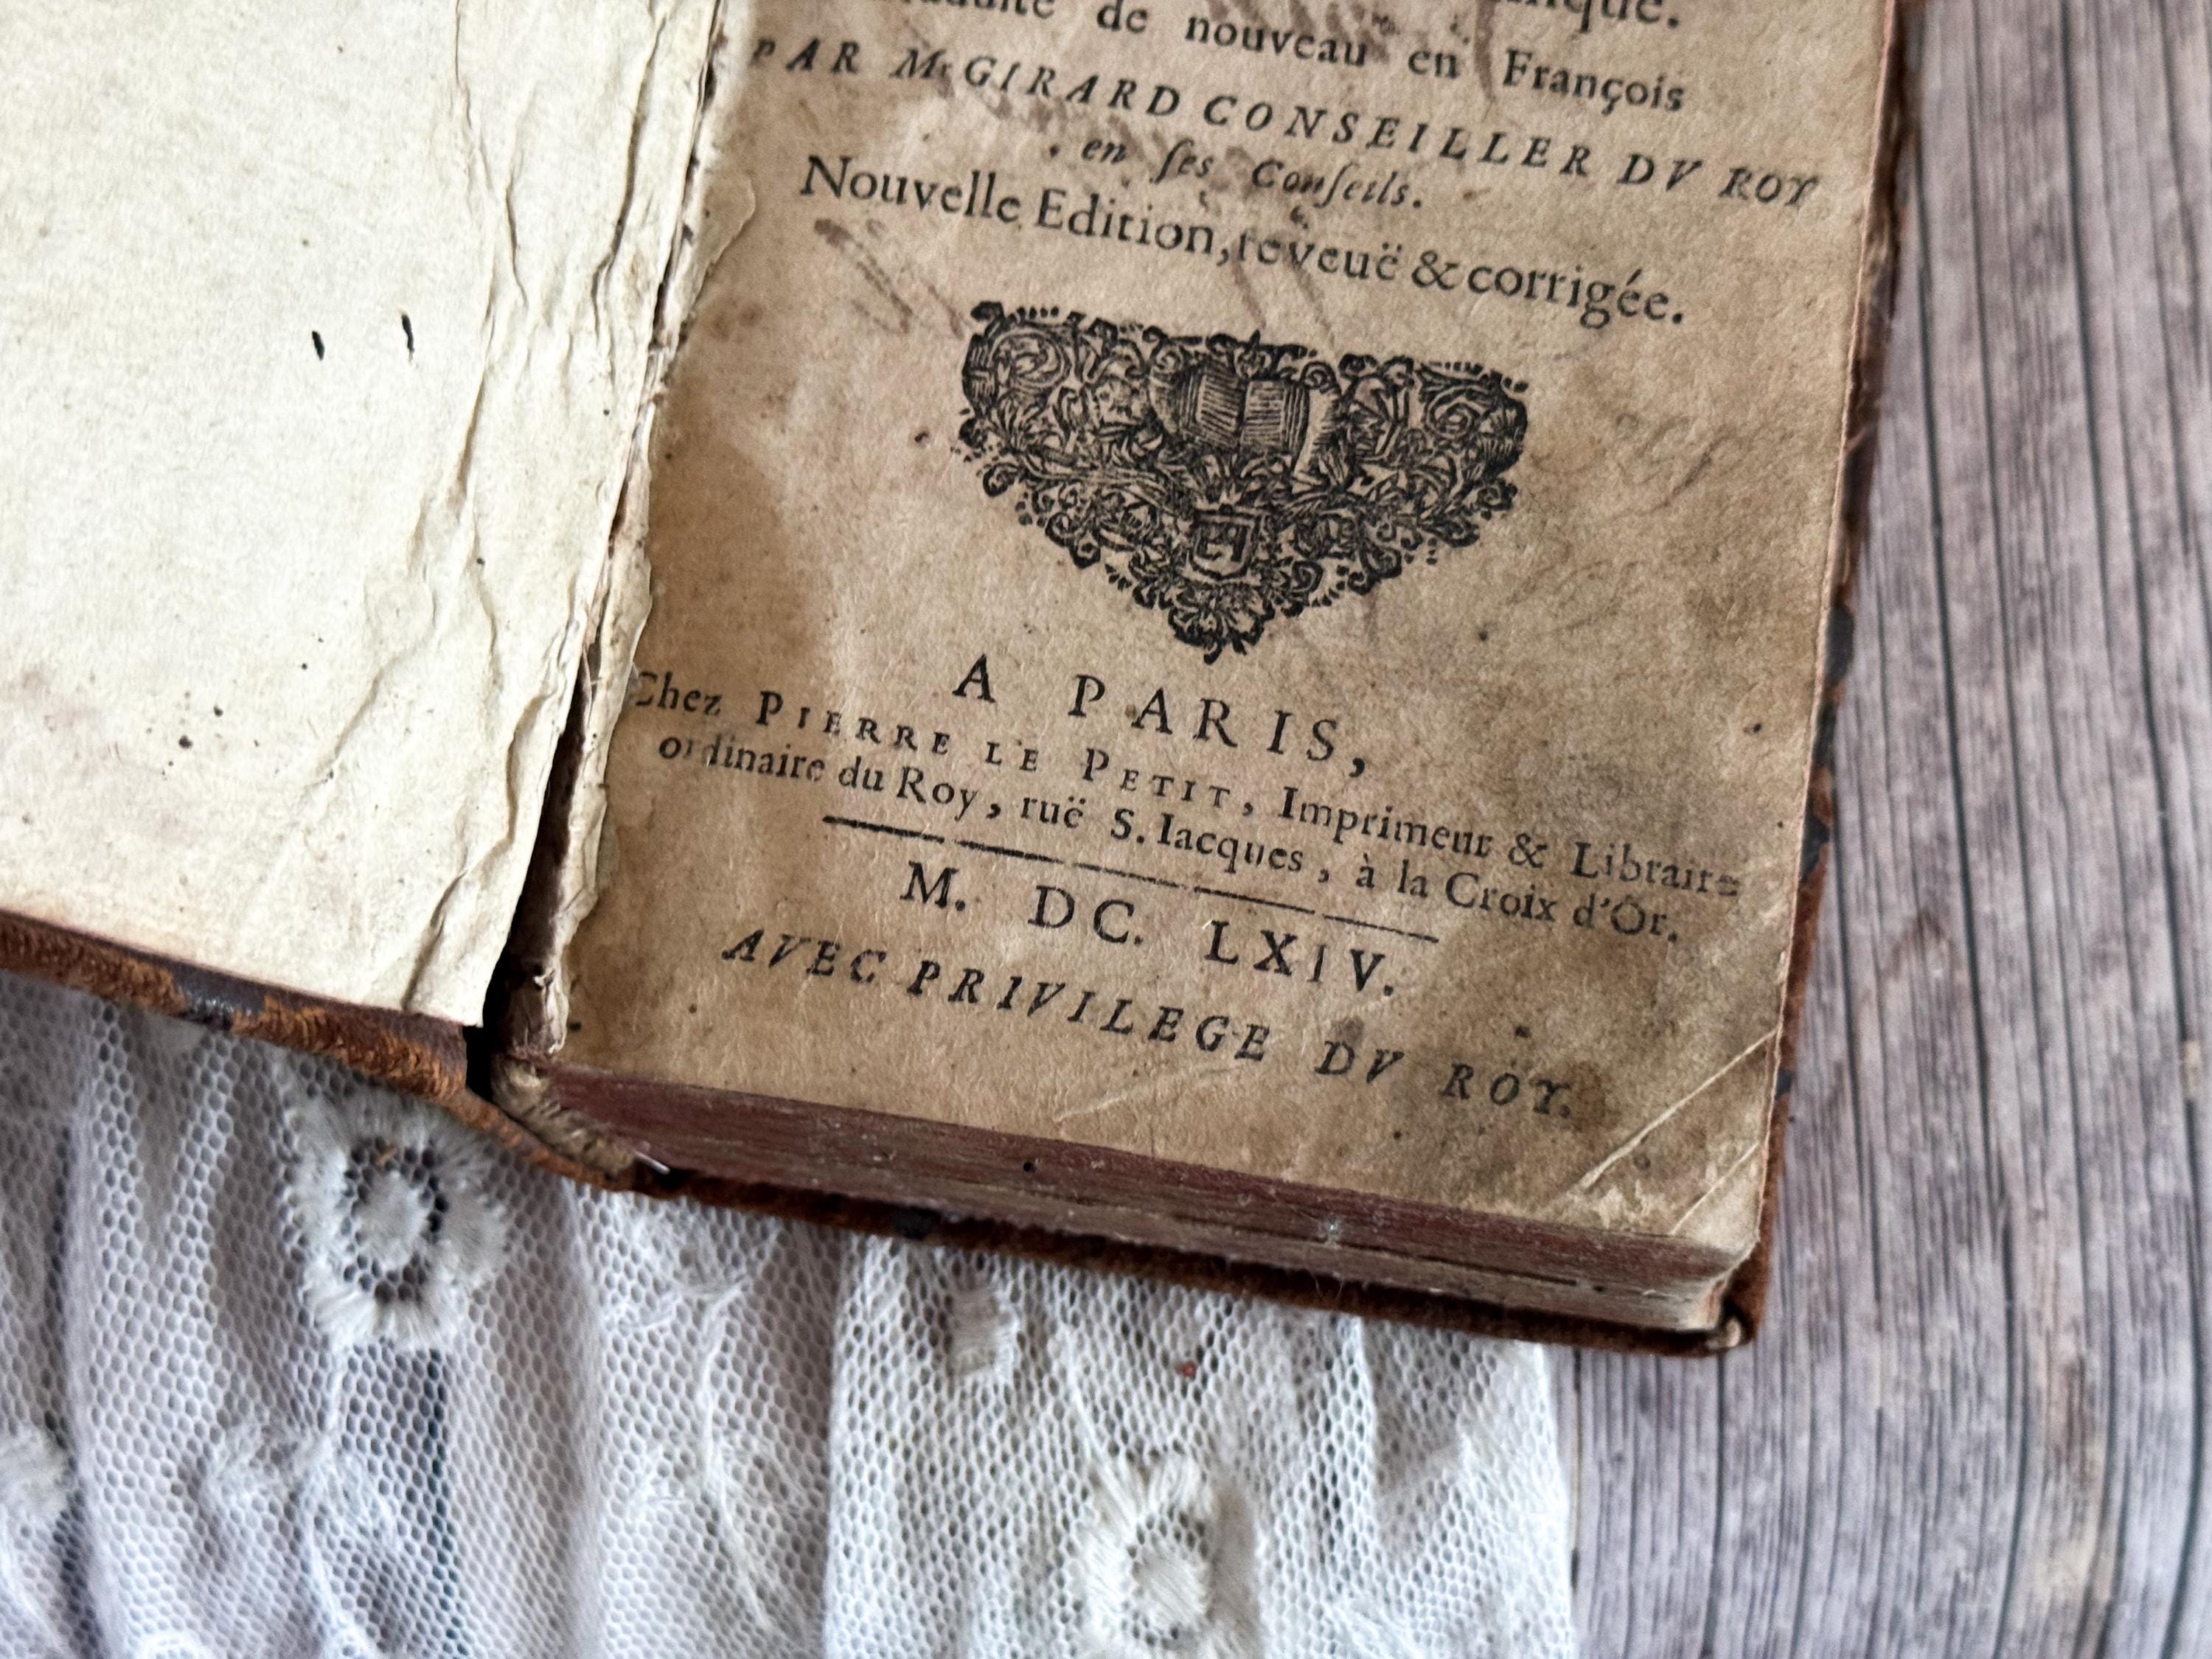 de nouveau en François
PAR Mr GIRARD CONSEILLER DV ROY
en ſes Conſeils.
Nouvelle Edition, reveuë & corrigée.
A PARIS,
Chez PIERRE LE PETIT, Imprimeur & Libraire
ordinaire du Roy, ruë S. Iacques, à la Croix d'Or.
M. DC. LXIV.
AVEC PRIVILEGE DV ROY.